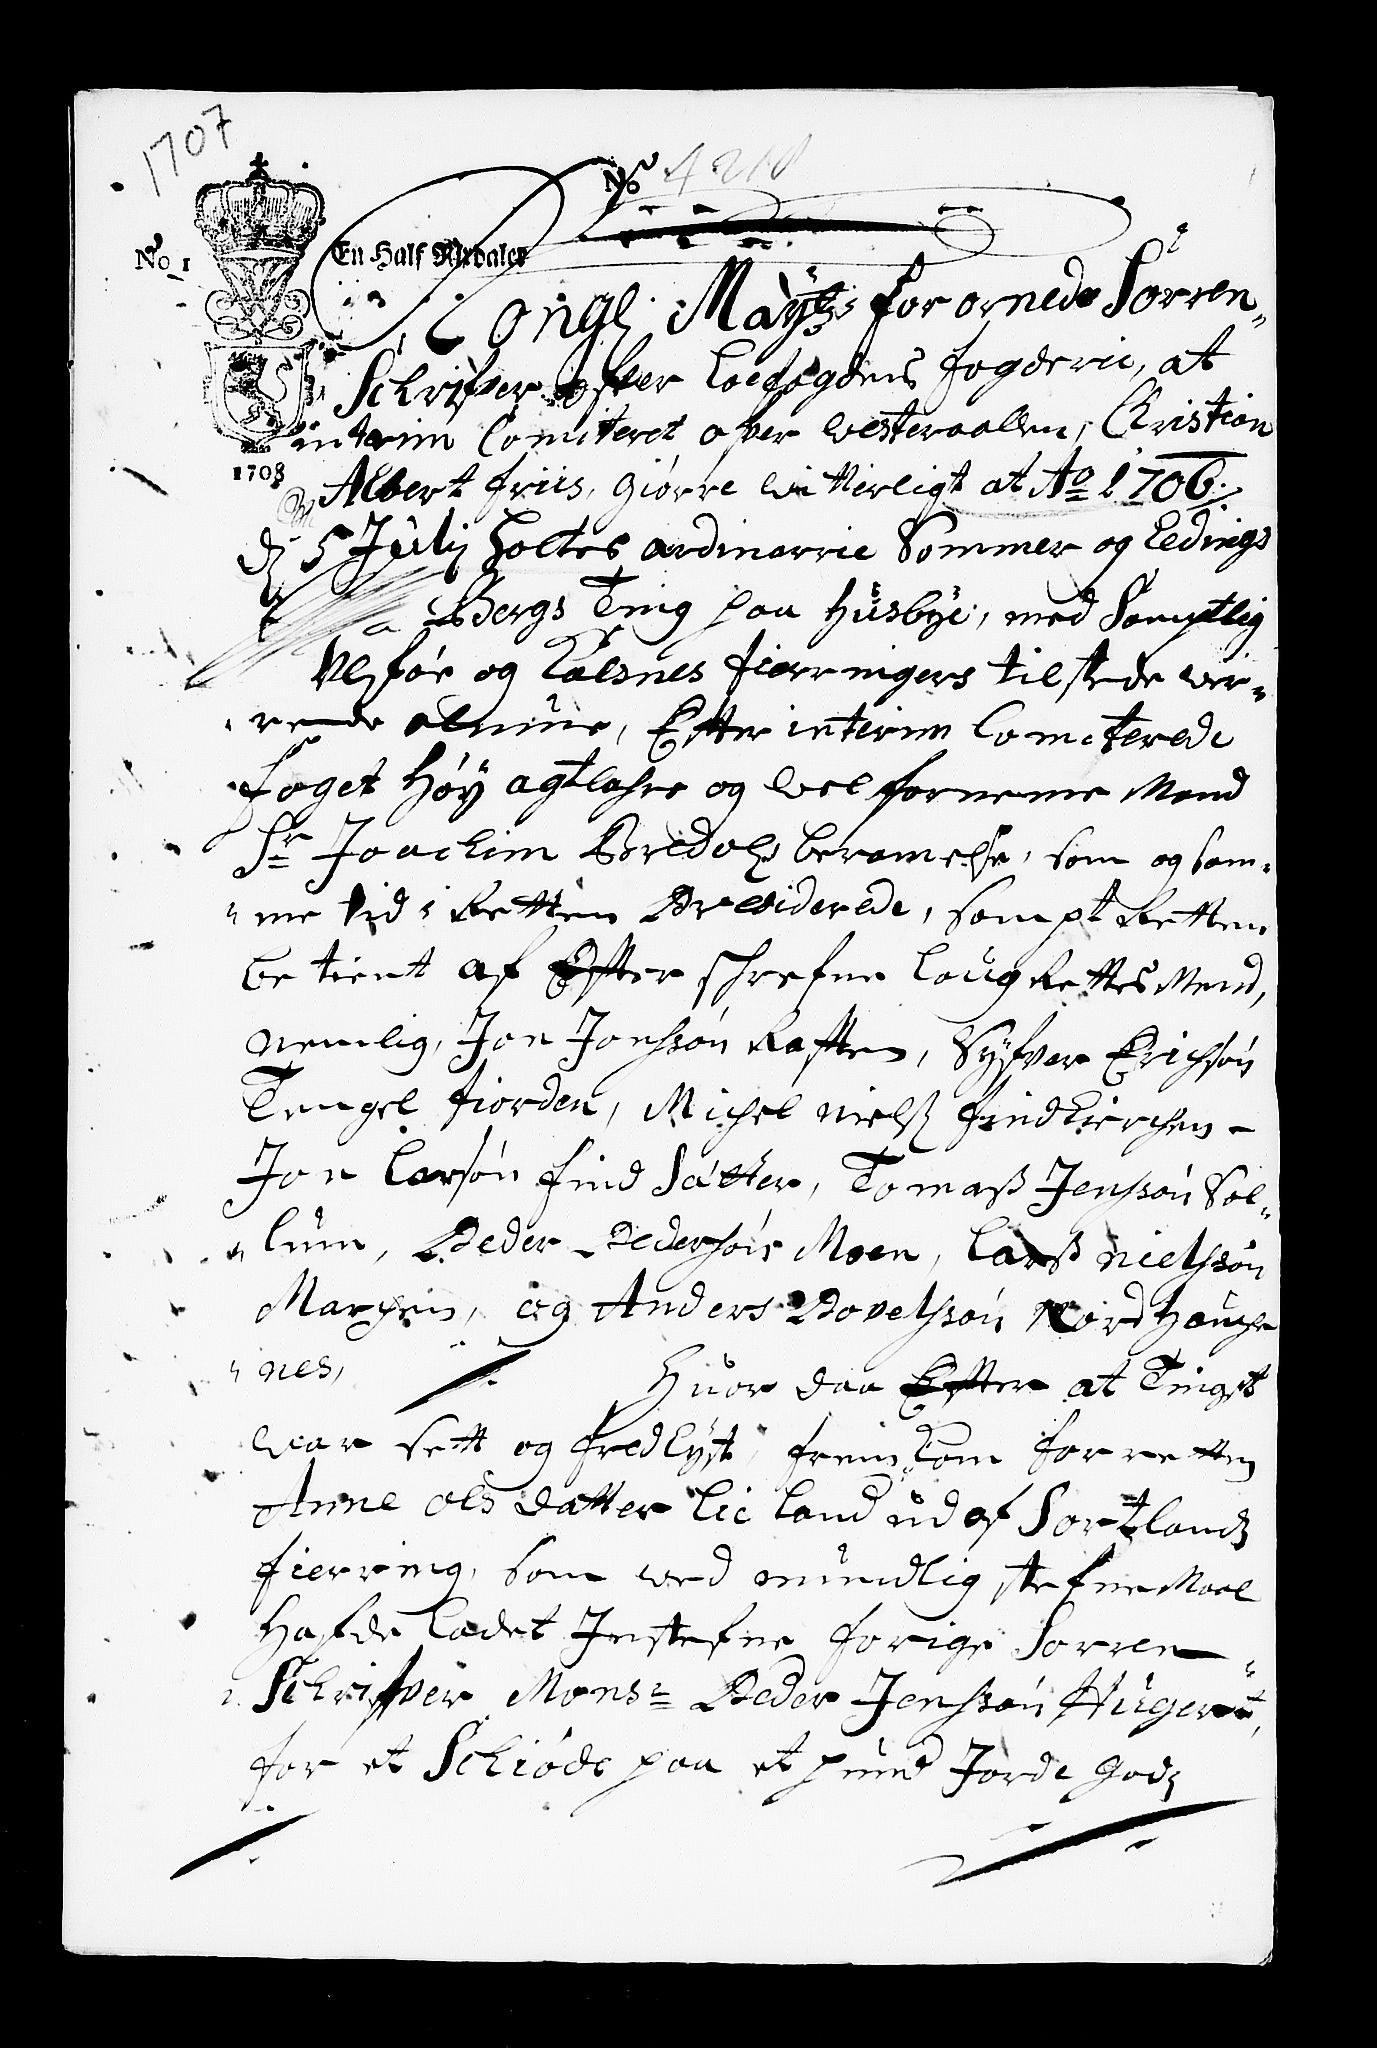 1707
No 4218
No 1
En Half Rixdaler
Kongl: Maytz for ornede Sorren„
Schrifver ofver Lofogdens fogderie, at
interim Comiteret ofver Westeraallen, Christian
1708
Albert friis, giörre Witterligt at Ao 1706.
dj 5 Julij holtes ordinarrie Sommer og Ledings
Bergs Ting paa Husbye, med Samptlig
Ulføe og Kalsnes fierringers tilstede wer„
rende almue, Efter interim Comiterede
foget Høy agtbahre og wel forneme Mand
Sr Joachim Bredals beramelse, som og sam„
„me tid i Retten Presiderede, sampt Retten
betient af Efter schrefne Laug Rettes Mend,
Nemlig, Jon Jonssøn Raften, Sÿfver Erichsøn
Tengel fiorden, Michel nielß findkierchen
Jon Larsøn find Sætter, Tomaß Jenssøn Sol„
„lum, Peder Pedersøn Moen, Larß nielssøn
Marchen, og Anders Povelssøn Nordhouche
„nes, Huor daa Efter at Tinget
war sett og fredlyst, fremkom for retten
Anne ols datter Lie land ud af Sortlands
fierring, som wed mundlig stefne Maal
Hafde ladet Jnstefne forige Sorren„
Schrifver Monsr Peder Jenssøn Hugert,
for et Schiöde paa et pund Jorde Gods